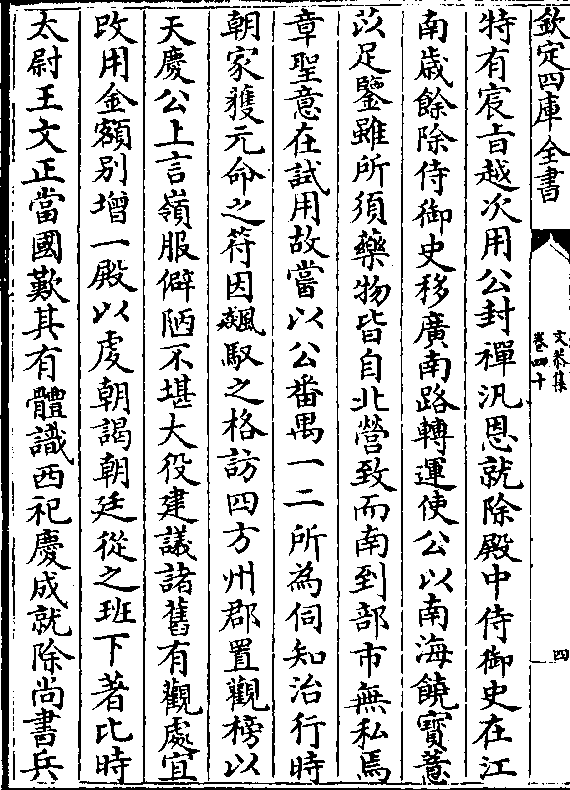 欽定四庫全書
文恭集
卷四十
四
特有宸旨越次用公封禪汎恩就除殿中侍御史在江
南歲餘除侍御史移廣南路轉運使公以南海饒寳意
苡足鑒雖所須藥物皆自北營致而南到部市無私焉
章聖意在試用故嘗以公番禺一二所為伺知治行時
朝家獲元命之符因飈馭之格訪四方州郡置觀榜以
天慶公上言嶺服僻陋不堪大役建議諸舊有觀處宜
改用金額别增一殿以䖍朝謁朝廷從之班下著比時
太尉王文正當國歎其有體識西祀慶成就除尚書兵